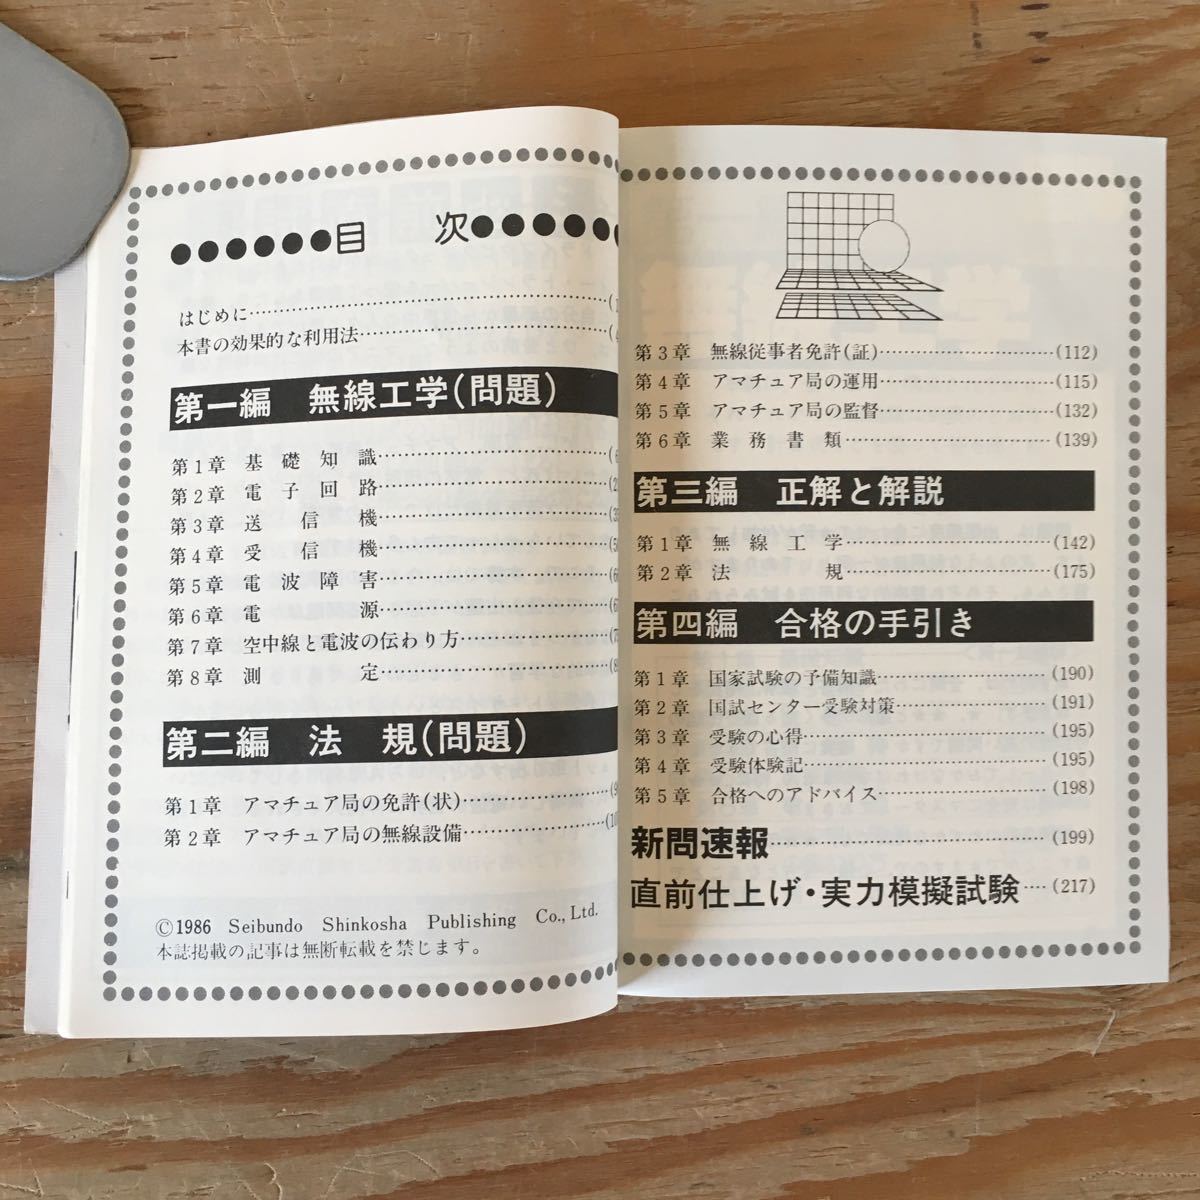 目 次
はじめに
本書の効果的な利用法
第一編 無線工学(問題)
第1章 基礎知識
第2章 電子回路
第3章 送信機
第4章 受信機
第5章 電波障害
第6章 電源
第7章 空中線と電波の伝わり方
第8章 測定
第二編 法規(問題)
第1章 アマチュア局の免許(状)
第2章 アマチュア局の無線設備
©1986 Seibundo Shinkosha Publishing Co., Ltd.
本誌掲載の記事は無断転載を禁じます。
第3章 無線従事者免許(証)…(112)
第4章 アマチュア局の運用…(115)
第5章 アマチュア局の監督…(132)
第6章 業務書類…(139)
第三編 正解と解説
第1章 無線工学…(142)
第2章 法規…(175)
第四編 合格の手引き
第1章 国家試験の予備知識…(190)
第2章 国試センター受験対策…(191)
第3章 受験の心得…(195)
第4章 受験体験記…(195)
第5章 合格へのアドバイス…(198)
新問速報…(199)
直前仕上げ・実力模擬試験…(217)